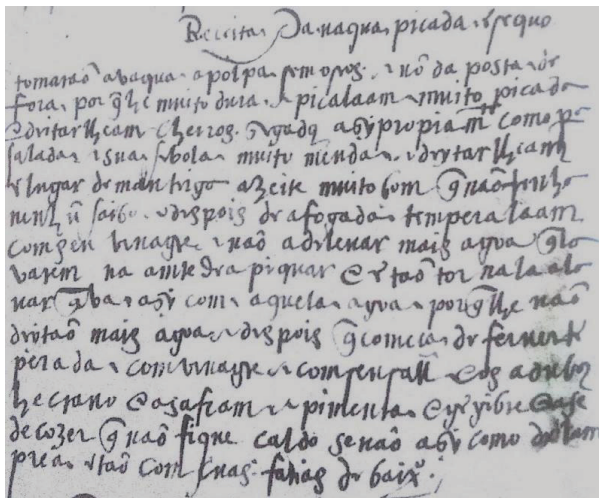 Reçeita Da vaqua picada e sequo
tomaraõ a vaqua a polpa sem osos e nõ da posta de
fora por q̃ he muito dura e picalaam muito picada
e deitar lheam cheiros segados asy propiam como pª
salada e sua sebola muito menda e deytar lheam
e lugar de manteiga azeite muito bom q̃ não tenha
nenhũ saibo e despois de afogada temperalaam
com seu vinagre e naõ a de levar mais agoa q̃ la
varem na ante de a piquar e ẽtaõ tornala a la
var e asy com aquela agoa porq̃ lhe naõ
deytaõ mais agoa e despois q̃ comeca de ferver te
perada com vinagre e com seu sall e os adubos
he cravo e asafram e pimenta e gẽgibre e ase
de cozer q̃ naõ fique caldo senaõ asy como de lam
prea ẽtaõ com suas fatias de baixº